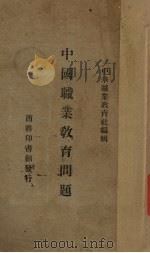 中華職業教育社編輯
中國職業教育問題
商務印書館發行